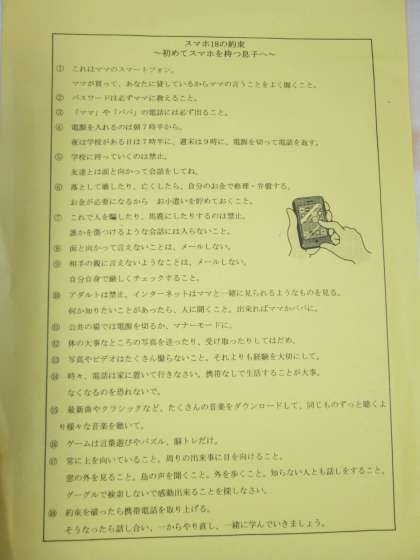 スマホ18の約束
～初めてスマホを持つ息子へ～
① これはママのスマートフォン。
ママが買って、あなたに貸しているからママの言うことをよく聞くこと。
② パスワードは必ずママに教えること。
③ 「ママ」や「パパ」の電話には必ず出ること。
④ 電源を入れるのは朝７時半から。
夜は学校がある日は７時半に、週末は９時に、電源を切って電話を返す。
⑤ 学校に持っていくのは禁止。
友達とは面と向かって会話をしてね。
⑥ 落として壊したり、亡くしたら、自分のお金で修理・弁償する。
お金が必要になるから お小遣いを貯めておくこと。
⑦ これで人を騙したり、馬鹿にしたりするのは禁止。
誰かを傷つけるような会話には入らないこと。
⑧ 面と向かって言えないことは、メールしない。
⑨ 相手の親に言えないようなことは、メールしない。
自分自身で厳しくチェックすること。
⑩ アダルトは禁止。インターネットはママと一緒に見られるようなものを見る。
何か知りたいことがあったら、人に聞くこと。出来ればママかパパに。
⑪ 公共の場では電源を切るか、マナーモードに。
⑫ 体の大事なところの写真を送ったり、受け取ったりしてはだめ。
⑬ 写真やビデオはたくさん撮らないこと。それよりも経験を大切にして。
⑭ 時々、電話は家に置いて行きなさい。携帯なしで生活することが大事。
なくなるのを恐れないで。
⑮ 最新曲やクラシックなど、たくさんの音楽をダウンロードして、同じものずっと聴くよ
り様々な音楽を聴いて。
⑯ ゲームは言葉遊びやパズル、脳トレだけ。
⑰ 常に上を向いていること。周りの出来事に目を向けること。
窓の外を見ること。鳥の声を聞くこと。外を歩くこと。知らない人とも話しをすること。
グーグルで検索しないで感動出来ることを探しなさい。
⑱ 約束を破ったら携帯電話を取り上げる。
そうなったら話し合い、一からやり直し、一緒に学んでいきましょう。